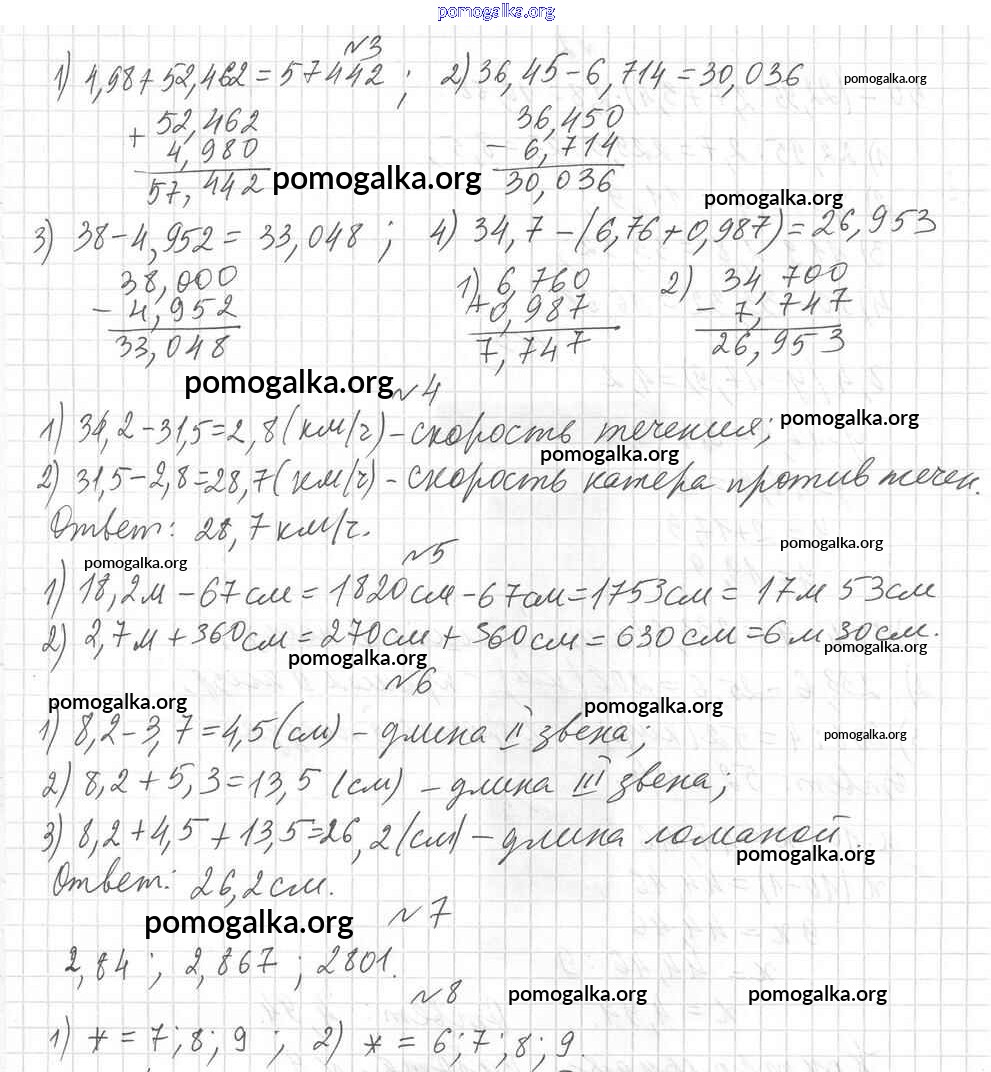 pomogalka.org
№3
1) 4,98+52,462=57442 ; 2) 36,45-6,714=30,036 pomogalka.org
+ 52,462
4,980
57,442
36,450
- 6,714
30,036
pomogalka.org
pomogalka.org
3) 38-4,952=33,048 ; 4) 34,7-(6,76+0,987)=26,953
38,000
- 4,952
33,048
1) 6,760
+ 0,987
7,747
2) 34,700
- 7,747
26,953
pomogalka.org №4
1) 34,2-31,5=2,8(км/ч)-скорость течения; pomogalka.org
pomogalka.org
2) 31,5-2,8=28,7(км/ч)-скорость катера против течен.
Ответ: 28,7км/ч.
pomogalka.org
№5
pomogalka.org
1) 18,2м-67см=1820см-67см=1753см=17м 53см
2) 2,7м+360см=270см+360см=630см=6м 30см.
pomogalka.org
pomogalka.org
№6
pomogalka.org pomogalka.org
1) 8,2-3,7=4,5(см)-длина II звена; pomogalka.org
2) 8,2+5,3=13,5(см)-длина III звена;
3) 8,2+4,5+13,5=26,2(см)-длина ломаной.
pomogalka.org
Ответ: 26,2см.
pomogalka.org №7
2,84 ; 2,867 ; 2801.
№8 pomogalka.org pomogalka.org
1) * = 7;8;9 ; 2) * = 6;7;8;9.